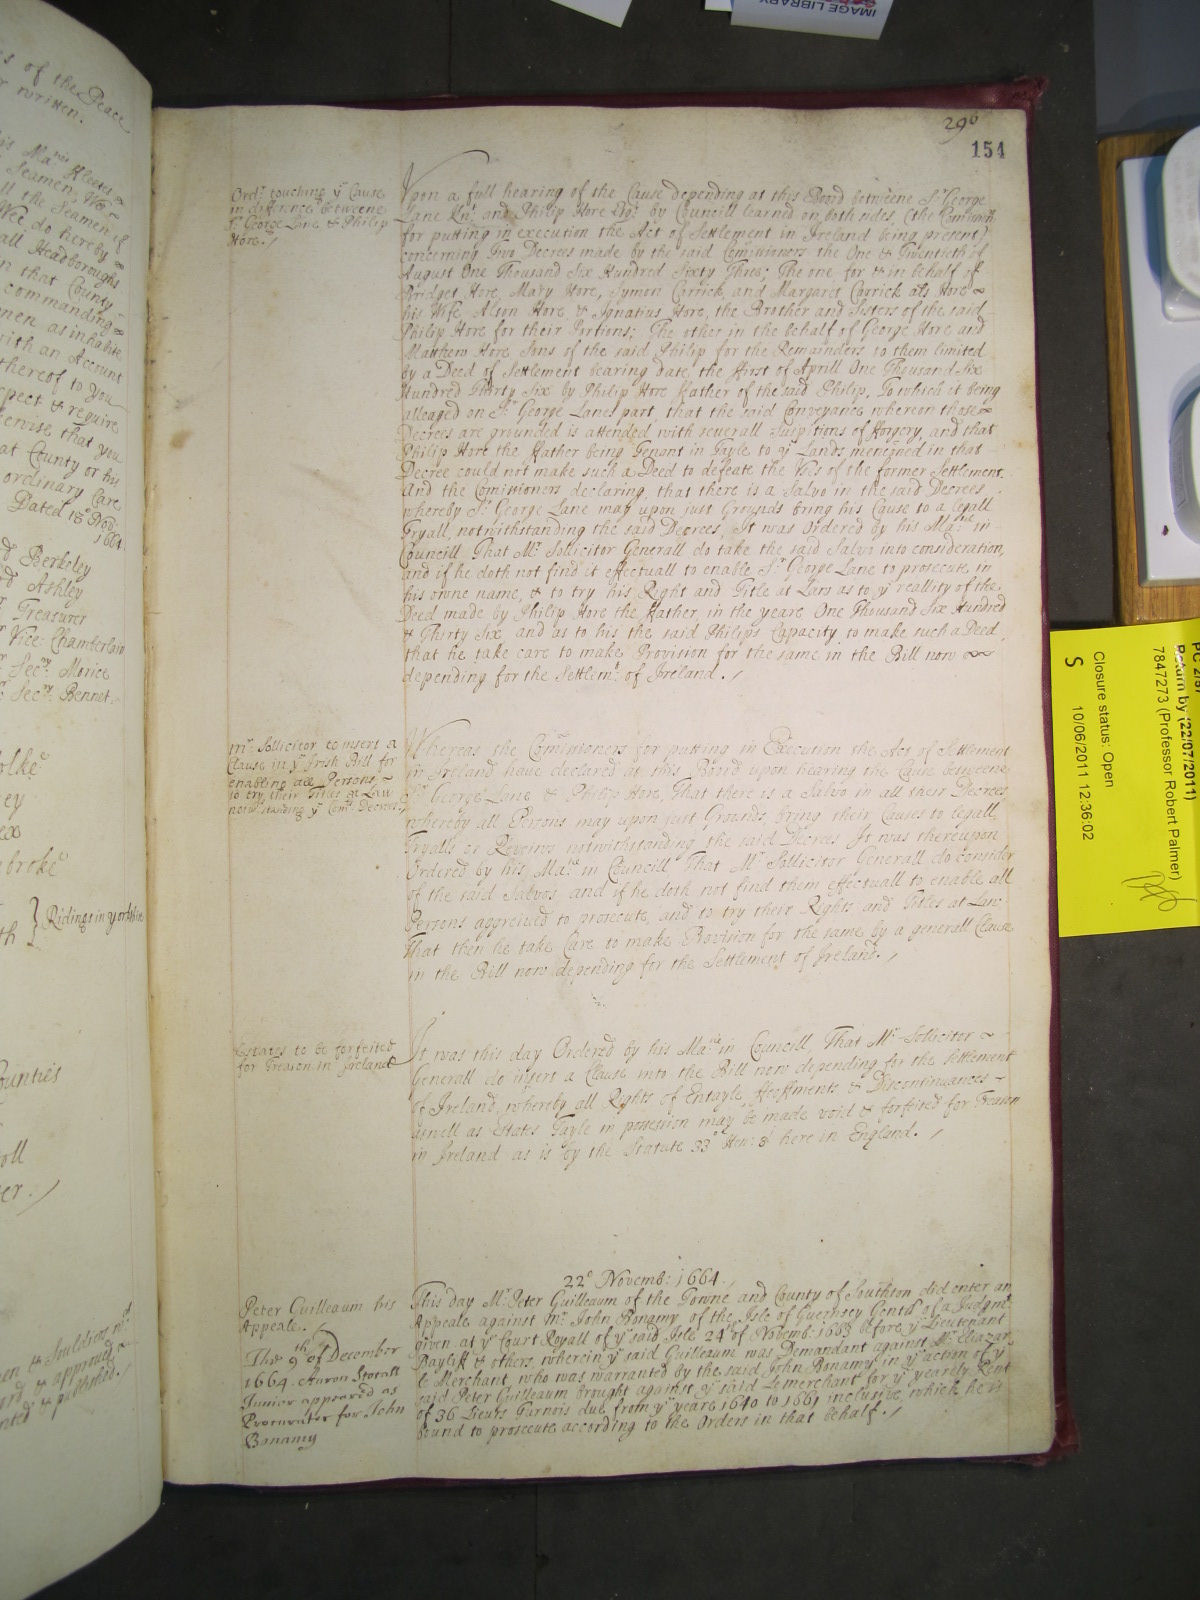 s of the Peace
r written.
his Ma.ties Fleetes
Seamen, Wee
ll the Seamen if
Wee do hereby
all Headboroughs
in that County
commanding
men as inhabite
with an Account
thereof to you
xpect & require
ferwise that you
at County or his
ordinary Care
Dated 18.o Nov:
1664.
d Berkeley
rd Ashley
r Treasurer
r Vice Chamberlain
r: Sec.ry Morice
r: Sec.ry Bennet.
olke
ey
ex
broke
th } Ridings in yorkshire
ounties
oll
er. /
296
154
Ord.r touching y.e Cause
in difference betweene
S.r George Lane & Philip
Hore. /
Upon a full hearing of the Cause depending at this Board betweene S.r George
Lane Kn.t and Philip Hore Esq.r by Councill learned on both sides (the Com̃ion.rs
for putting in execution the Act of Settlement in Ireland being present)
concerning Two Decrees made by the said Com̃issioners the One & Twentieth of
August One Thousand Six Hundred Sixty Three; The one for & in behalf of
Bridget Hore, Mary Hore, Symon Carrick, and Margaret Carrick als Hore
his Wife, Alson Hore, & Ignatius Hore, the Brother and Sisters of the said
Philip Hore for their Portions; The other in the behalf of George Hore and
Matthew Hore Sons of the said Philip for the Remainders to them limited
by a Deed of Settlement bearing date, the first of Aprill One Thousand Six
Hundred Thirty Six by Philip Hore Father of the said Philip, To which it being
alleaged on S.r George Lanes part, that the said Conveyance whereon those
Decrees are grounded is attended with severall Suspitions of Forgery, and that
Philip Hore the Father being Tenant in Tayle to y.e Lands menc̃oned in that
Decree could not make such a Deed to defeate the Uses of the former Settlement.
And the Com̃issioners declaring, that there is a Salvo in the said Decrees
whereby S.r George Lane may upon just Grounds bring his Cause to a legall
Tryall, notwithstanding the said Decrees, It was Ordered by his Ma.tie in
Councill That M.r Sollicitor Generall do take the said Salvo into consideration,
and if he doth not find it effectuall to enable S.r George Lane to prosecute in
his owne name, & to try his Right and Title at Law as to y.e reallity of the
Deed made by Philip Hore the Father in the yeare One Thousand Six Hundred
& Thirty Six, and as to his the said Philips Capacity to make such a Deed,
that he take care to make Provision for the same in the Bill now
depending for the Settlem.t of Ireland. /
M.r Sollicitor to insert a
Clause in y.e Irish Bill for
enabling all Persons
to try their Titles at Law
notw.thstanding y.e Com.rs Decrees. /
Whereas the Com̃issioners for putting in Execution the Act of Settlement
in Ireland have declared at this Board upon hearing the Cause betweene
S.r George Lane & Philip Hore, That there is a Salvo in all their Decrees
whereby all Persons may upon just Grounds bring their Causes to legall
Tryalls or Reveiws notwithstanding the said Decrees It was thereupon
Ordered by his Ma.tie in Councill That M.r Sollicitor Generall do consider
of the said Salvos, and if he doth not find them effectuall to enable all
Persons aggreived to prosecute, and to try their Rights and Titles at Law
That then he take Care to make Provision for the same by a generall Clause
in the Bill now depending for the Settlement of Ireland. /
Estates to be forfeited
for Treason in Ireland
It was this day Ordered by his Ma.tie in Councill, That M.r Sollicitor
Generall do insert a Clause into the Bill now depending for the Settlement
of Ireland, whereby all Rights of Entayle, Feoffments & Discontinuances
aswell as Estates Tayle in possession may be made void & forfeited for Treason
in Ireland as is by the Statute 33.o Hen: 8.i here in England. /
22.o Novemb: 1664.
Peter Guilleaum his
Appeale. /
This day M.r Peter Guilleaum of the Towne and County of Southton did enter an
Appeale against M.r John Bonamy of the Isle of Guernsey Gent: of a Judgm.t
given at y.e Court Royall of y.e said Isle 24.th of Novemb: 1663 before y.e Lieutenant
Bayliff & others, wherein y.e said Guilleaum was Demandant against M.r Eliazar
le Merchant, who was warranted by the said John Bonamy, in y.e action of y.e
said Peter Guilleaum brought against y.e said Lemerchant for y.e yearely Rent
of 36 Lieurs Turnois due from y.e yeare 1640 to 1661 inclusive, which he is
bound to prosecute according to the Orders in that behalf. /
The 9.th of December
1664. Aaron Stotall
Junior appeared as
Procurator for John
Bonamy
IMAGE LIBRARY
PC 2/57
Return by (22/07/2011)
7847273 (Professor Robert Palmer)
Closure status: Open
S 10/06/2011 12:36:02